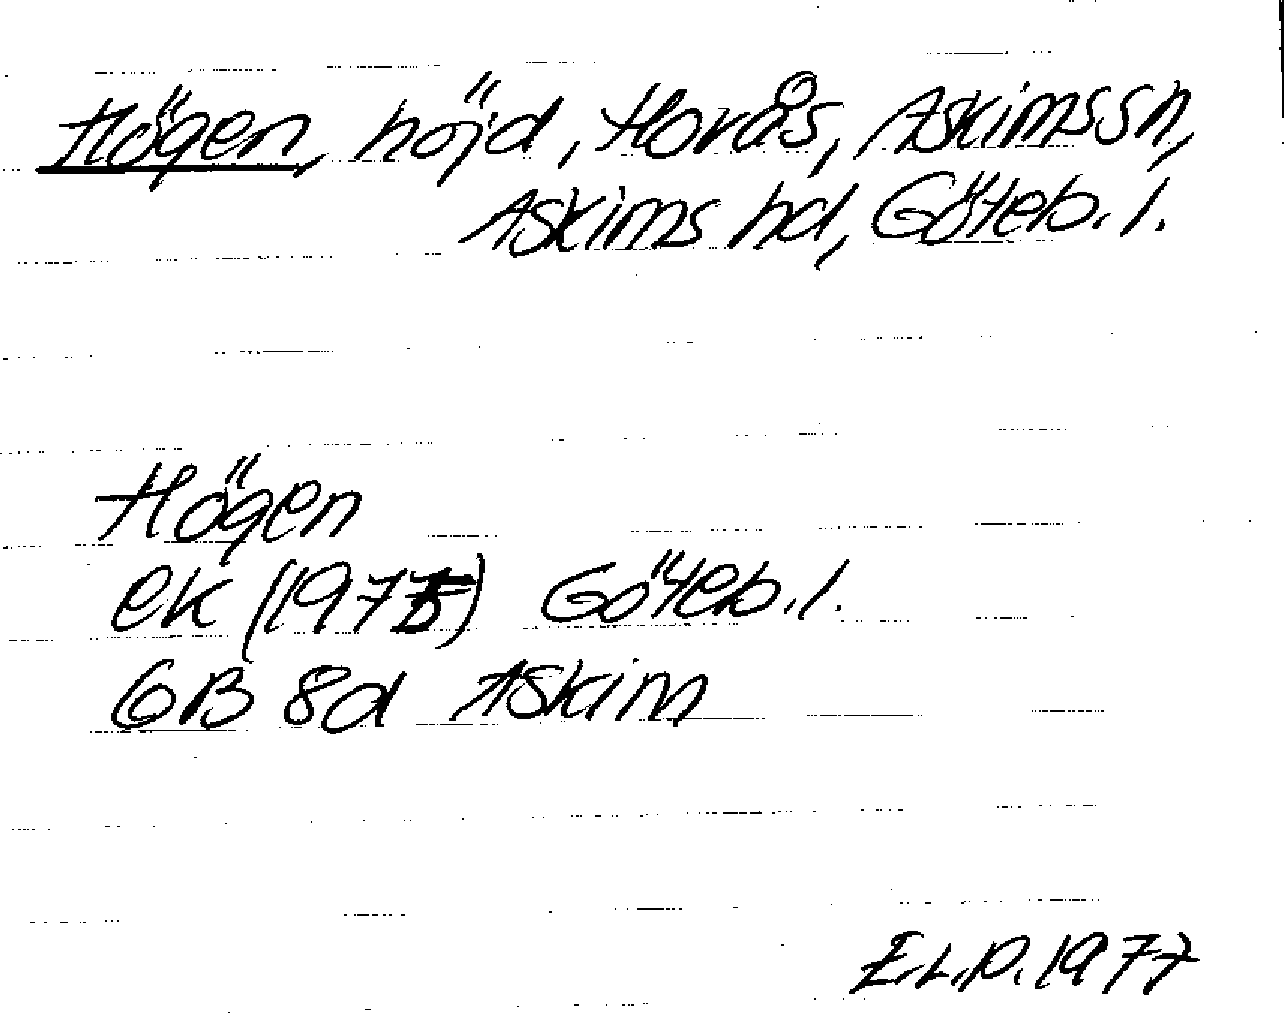 Högen, höjd, Hovås, Askims sn,
Askims hd, Göteb. l.
Högen
ek (1975) Göteb. l.
6B 8d Askim
E.L.P. 1977